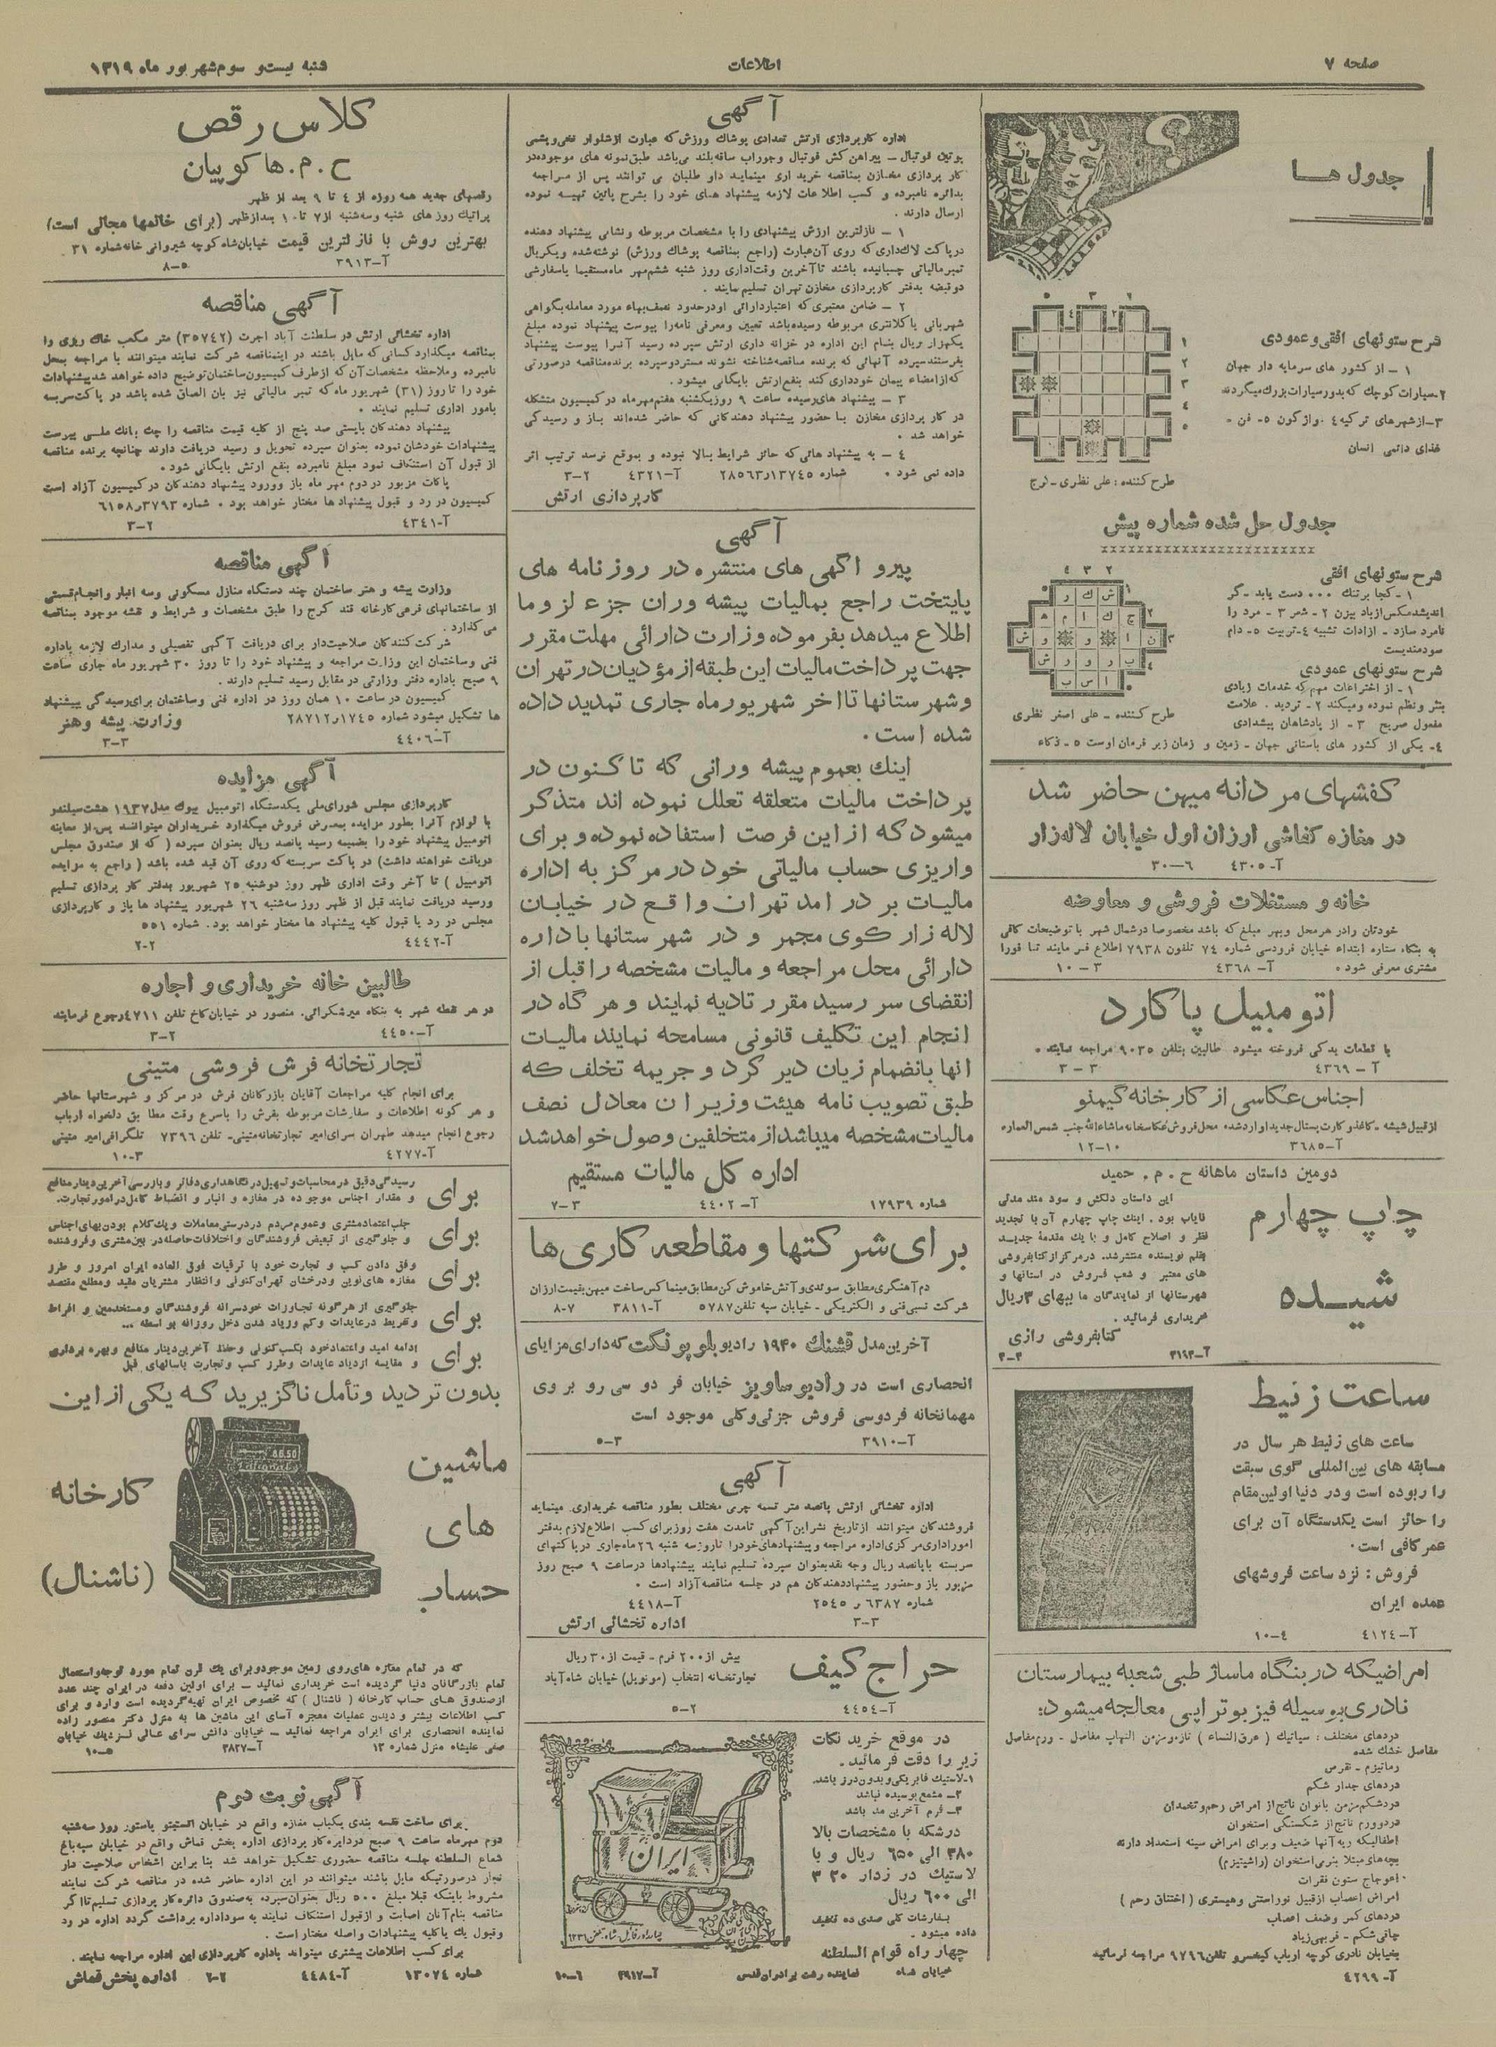 صفحه ۷
اطلاعات
شنبه بیست و سوم شهریور ماه ۱۳۱۹
جدول ها
شرح ستونهای افقی و عمودی
۱ - از کشور های سرمایه دار جهان
۲ـ سیارات کوچک که بدور سیارات بزرگ میگردند
۳ـ از شهرهای ترکیه ۴ ـ واژگون ۵ـ فن ـ
غذای دائمی انسان
طرح کننده : علی نظری ـ کرج
جدول حل شده شماره پیش
شرح ستونهای افقی
۱ - کجا برتنک ۰۰۰ دست یابد ـ گر
اندیشد مکس ازباد بیزن ۲ـ شعر ۳ ـ مرد را
نامرد سازد ـ ازادات تشبیه ۴ـ تربیت ۵ـ دام
سودمندیست
شرح ستونهای عمودی
۱ - از اختراعات مهم که خدمات زیادی
بنثر ونظم نموده ومیکند ۲ـ تردید ـ علامت
مفعول صریح ۳ ـ از پادشاهان پیشدادی
۴ـ یکی از کشور های باستانی جهان ـ زمین و زمان زیر فرمان اوست ۵ ـ ذکاء
طرح کننده ـ علی اصغر نظری
کفشهای مردانه میهن حاضر شد
در مغازه کفاشی ارزان اول خیابان لاله زار
آـ ۴۳۰۵ ۶-۳۰
خانه و مستغلات فروشی و معاوضه
خودتان رادر هر محل وبهر مبلغ که باشد مخصوصا در شمال شهر با توضیحات کافی
به بنگاه ستاره ابتداء خیابان فردوسی شماره ۷۴ تلفون ۷۹۳۸ اطلاع فرمایند تا فورا
مشتری معرفی شود ۰ آـ ۴۳۶۸ ۳-۱۰
اتومبیل پاکارد
با قطعات یدکی فروخته میشود طالبین بتلفن ۹۰۳۵ مراجعه نمایند ۰
آ - ۴۳۶۹ ۳-۳
اجناس عکاسی از کارخانه گیمنو
ازقبیل شیشه ـ کاغذ و کارت پستال جدیدا وارد شده محل فروش عکاسخانه ماشاءالله جنب شمس العماره
آـ ۳۶۸۵ ۱۰-۱۲
دومین داستان ماهانه ح . م . حمید
چاپ چهارم
شیده
این داستان دلکش و سود مند مدتی
نایاب بود . اینک چاپ چهارم آن با تجدید
نظر و اصلاح کامل و با یک مقدمهٔ جدید
بقلم نویسنده منتشر شد. در مرکز از کتابفروشی
های معتبر و شعب فروش در استانها و
شهرستانها از نمایندگان ما ببهای ۳ ریال
خریداری فرمائید .
کتابفروشی رازی
ساعت زنیط
ساعت های زنیط هر سال در
مسابقه های بین المللی گوی سبقت
را ربوده است ودر دنیا اولین مقام
را حائز است یکدستگاه آن برای
عمر کافی است ۰
فروش : نزد ساعت فروشهای
عمده ایران
آـ ۴۱۲۴ ۴-۱۰
امراضیکه در بنگاه ماساژ طبی شعبه بیمارستان
نادری بوسیله فیزیوتراپی معالجه میشود:
دردهای مختلف : سیاتیک ( عرق النساء ) تازه ومزمن التهاب مفاصل ـ ورم مفاصل
مفاصل خشک شده
رماتیزم ـ نقرس
دردهای جدار شکم
درد شکم مزمن بانوان ناتج از امراض رحم و تخمدان
درد و ورم ناتج از شکستگی استخوان
اطفالیکه ریه آنها ضعیف و برای امراض سینه استعداد دارند
بچه های مبتلا بنرمی استخوان (راشیتیزم)
اعوجاج ستون فقرات
امراض اعصاب ازقبیل نوراستنی و هیستری ( اختناق رحم )
دردهای کمر وضعف اعصاب
چاقی شکم ـ فربهی زیاد
بخیابان نادری کوچه ارباب کیخسرو تلفن ۹۷۹۶ مراجعه فرمائید
آـ ۴۲۹۹
آگهی
اداره کارپردازی ارتش تعدادی پوشاک ورزش که عبارت ازشلوار نخی و پشمی
پوتین فوتبال ـ پیراهن کش فوتبال و جوراب ساقه بلند می باشد طبق نمونه های موجوده در
کار پردازی مخازن بمناقصه خریداری مینماید داو طلبان می توانند پس از مراجعه
بدائره نامبرده و کسب اطلاعات لازمه پیشنهاد های خود را بشرح پائین تهیه نموده
ارسال دارند .
۱ - نازلترین ارزش پیشنهادی را با مشخصات مربوطه و نشانی پیشنهاد دهنده
درپاکت لاک داری که روی آن عبارت (راجع بمناقصه پوشاک ورزش) نوشته شده و یکریال
تمبر مالیاتی چسبانیده باشند تا آخرین وقت اداری روز شنبه ششم مهر ماه مستقیما یا سفارشی
دو قبضه بدفتر کارپردازی مخازن تهران تسلیم نمایند .
۲ - ضامن معتبری که اعتبار دارائی او در حدود نصف بهاء مورد معامله بگواهی
شهربانی یا کلانتری مربوطه رسیده باشد تعیین و معرفی نامه را پیوست پیشنهاد نموده مبلغ
یکهزار ریال بنام این اداره در خزانه داری ارتش سپرده رسید آنرا پیوست پیشنهاد
بفرستند سپرده آنهائی که برنده مناقصه شناخته نشوند مسترد و سپرده برنده مناقصه در صورتی
که از امضاء پیمان خودداری کند بنفع ارتش بایگانی میشود .
۳ - پیشنهاد های رسیده ساعت ۹ روز یکشنبه هفتم مهر ماه در کمیسیون متشکله
در کار پردازی مخازن با حضور پیشنهاد دهندگانی که حاضر شده اند باز و رسیدگی
خواهد شد ۰
۴ - به پیشنهاد هائی که حائز شرایط بالا نبوده و بموقع نرسد ترتیب اثر
داده نمی شود ۰ شماره ۱۳۷۴۵ر۲۸۵۶۳ آـ ۴۳۲۱ ۲-۳
کارپردازی ارتش
آگهی
پیرو اگهی های منتشره در روزنامه های
پایتخت راجع بمالیات پیشه وران جزء لزوما
اطلاع میدهد بفرموده وزارت دارائی مهلت مقرر
جهت پرداخت مالیات این طبقه از مؤدیان در تهران
و شهرستانها تا اخر شهریور ماه جاری تمدید داده
شده است ۰
اینک بعموم پیشه ورانی که تا کنون در
پرداخت مالیات متعلقه تعلل نموده اند متذکر
میشود که از این فرصت استفاده نموده و برای
واریزی حساب مالیاتی خود در مرکز به اداره
مالیات بر در امد تهران واقع در خیابان
لاله زار کوی مجمر و در شهر ستانها باداره
دارائی محل مراجعه و مالیات مشخصه را قبل از
انقضای سر رسید مقرر تادیه نمایند و هر گاه در
انجام این تکلیف قانونی مسامحه نمایند مالیات
انها بانضمام زیان دیر کرد و جریمه تخلف که
طبق تصویب نامه هیئت وزیران معادل نصف
مالیات مشخصه میباشد از متخلفین وصول خواهد شد
اداره کل مالیات مستقیم
شماره ۱۷۹۳۹ آـ ۴۴۰۲ ۳-۷
برای شرکتها و مقاطعه کاری ها
دم آهنگری مطابق سوئدی و آتش خاموش کن مطابق مینماکس ساخت میهن بقیمت ارزان
شرکت نسبی فنی و الکتریکی ـ خیابان سپه تلفن ۵۷۸۷ آـ ۳۸۱۱ ۷-۸
آخرین مدل قشنگ ۱۹۴۰ رادیو بلو پونکت که دارای مزایای
انحصاری است در رادیو ساویز خیابان فر دو سی رو بر وی
مهمانخانه فردوسی فروش جزئی و کلی موجود است
آـ ۳۹۱۰ ۳-۵
آگهی
اداره تخشائی ارتش پانصد متر تسمه چرمی مختلف بطور مناقصه خریداری مینماید
فروشندگان میتوانند از تاریخ نشر این آگهی تا مدت هفت روز برای کسب اطلاع لازم بدفتر
امور اداری مرکزی اداره مراجعه و پیشنهادهای خود را تا روز سه شنبه ۲۶ ماه جاری در پاکتهای
سربسته با پانصد ریال وجه نقد بعنوان سپرده تسلیم نمایند پیشنهادها در ساعت ۹ صبح روز
مزبور باز و حضور پیشنهاد دهندگان هم در جلسه مناقصه آزاد است ۰
شماره ۶۳۸۷ ر ۲۵۴۵ آـ ۴۴۱۸
۳-۳ اداره تخشائی ارتش
حراج کیف
بیش از ۲۰۰ فرم ـ قیمت از ۳۰ ریال
تجارتخانه انتخاب (مونوپل) خیابان شاه آباد
آـ ۴۴۵۴ ۲-۵
در موقع خرید نکات
زیر را دقت فرمائید .
۱ـ لاستیک فابریکی و بدون درز باشد.
۲ـ مشمع پوسیده نباشد
۳ـ فرم آخرین مد باشد
درشکه با مشخصات بالا
۳۸۰ الی ۶۵۰ ریال و با
لاستیک در زدار ۳۲۰
الی ۶۰۰ ریال
بسفارشات کلی صدی ده تخفیف
داده میشود .
چهار راه قوام السلطنه
خیابان شاه نماینده رشت برادران قدس آـ ۳۹۱۷ ۶-۱۰
ایران
کلاس رقص
ح . م . هاکوپیان
رقصهای جدید همه روزه از ۴ تا ۹ بعد از ظهر
پراتیک روز های شنبه وسه شنبه از ۷ تا ۱۰ بعد از ظهر (برای خانمها مجانی است)
بهترین روش با نازلترین قیمت خیابان شاه کوچه شیروانی خانه شماره ۳۱
آـ ۳۹۱۳ ۵-۸
آگهی مناقصه
اداره تخشائی ارتش در سلطنت آباد اجرت (۳۵۷۴۲) متر مکعب خاک ریزی را
بمناقصه میگذارد کسانی که مایل باشند در این مناقصه شرکت نمایند میتوانند با مراجعه بمحل
نامبرده و ملاحظه مشخصات آن که از طرف کمیسیون ساختمان توضیح داده خواهد شد پیشنهادات
خود را تا روز (۳۱) شهریور ماه که تمبر مالیاتی نیز بان الصاق شده باشد در پاکت سربسته
بامور اداری تسلیم نمایند .
پیشنهاد دهندگان بایستی صد پنج از کلیه قیمت مناقصه را چک بانک ملی پیوست
پیشنهادات خودشان نموده بعنوان سپرده تحویل و رسید دریافت دارند چنانچه برنده مناقصه
از قبول آن استنکاف نمود مبلغ نامبرده بنفع ارتش بایگانی شود .
پاکات مزبور در دوم مهر ماه باز و ورود پیشنهاد دهندگان در کمیسیون آزاد است
کمیسیون در رد و قبول پیشنهاد ها مختار خواهد بود ۰ شماره ۳۷۹۳ر۶۱۵۸
آـ ۴۳۴۱ ۲-۳
آگهی مناقصه
وزارت پیشه و هنر ساختمان چند دستگاه منازل مسکونی وسه انبار و انجام قسمتی
از ساختمانهای فرعی کارخانه قند کرج را طبق مشخصات و شرایط و نقشه موجود بمناقصه
می گذارد .
شرکت کنندگان صلاحیت دار برای دریافت آگهی تفصیلی و مدارک لازمه باداره
فنی و ساختمان این وزارت مراجعه و پیشنهاد خود را تا روز ۳۰ شهریور ماه جاری ساعت
۹ صبح باداره دفتر وزارتی در مقابل رسید تسلیم دارند .
کمیسیون در ساعت ۱۰ همان روز در اداره فنی و ساختمان برای رسیدگی پیشنهاد
ها تشکیل میشود شماره ۱۷۴۵ر۲۸۷۱۲ وزارت پیشه و هنر
آـ ۴۴۰۶ ۳-۳
آگهی مزایده
کارپردازی مجلس شورای ملی یکدستگاه اتومبیل بیوک مدل ۱۹۳۷ هشت سیلندر
با لوازم آنرا بطور مزایده بمعرض فروش میگذارد خریداران میتوانند پس از معاینه
اتومبیل پیشنهاد خود را بضمیمه رسید پانصد ریال بعنوان سپرده ( که از صندوق مجلس
دریافت خواهند داشت) در پاکت سربسته که روی آن قید شده باشد ( راجع به مزایده
اتومبیل ) تا آخر وقت اداری ظهر روز دوشنبه ۲۵ شهریور بدفتر کار پردازی تسلیم
ورسید دریافت نمایند قبل از ظهر روز سه شنبه ۲۶ شهریور پیشنهاد ها باز و کارپردازی
مجلس در رد یا قبول کلیه پیشنهاد ها مختار خواهد بود. شماره ۵۵۱
آـ ۴۴۴۲ ۲-۲
طالبین خانه خریداری و اجاره
در هر نقطه شهر به بنگاه میرشکرائی. منصور در خیابان کاخ تلفن ۴۷۱۱ رجوع فرمایند
آـ ۴۴۵۰ ۲-۳
تجارتخانه فرش فروشی متینی
برای انجام کلیه مراجعات آقایان بازرگانان فرش در مرکز و شهرستانها حاضر
و هر گونه اطلاعات و سفارشات مربوطه بفرش را باسرع وقت مطا بق دلخواه ارباب
رجوع انجام میدهد طهران سرای امیر تجارتخانه متینی ـ تلفن ۷۳۹۶ تلگرافی امیر متینی
آـ ۴۲۷۷ ۳-۱۰
برای رسیدگی دقیق در محاسبات و تسهیل در نگاهداری دفاتر و بازرسی آخرین دینار منافع
و مقدار اجناس موجوده در مغازه و انبار و انضباط کامل در امور تجارت.
برای جلب اعتماد مشتری و عموم مردم در درستی معاملات و یک کلام بودن بهای اجناس
و جلوگیری از تبعیض فروشندگان و اختلافات حاصله در بین مشتری و فروشنده
برای وفق دادن کسب و تجارت خود با ترقیات فوق العاده ایران امروز و طرز
مغازه های نوین و درخشان تهران کنونی و انتظار مشتریان مفید و مطلع مقتصد
برای جلوگیری از هر گونه تجاوزات خودسرانه فروشندگان و مستخدمین و افراط
و تفریط در عایدات و کم و زیاد شدن دخل روزانه بو اسطه ...
برای ادامه امید و اعتماد خود بکسب کنونی و حفظ آخرین دینار منافع و بهره برداری
و مقایسه ازدیاد عایدات و طرز کسب و تجارت با سالهای قبل
بدون تردید و تأمل ناگزیرید که یکی از این
ماشین های حساب
کارخانه (ناشنال)
که در تمام مغازه های روی زمین موجود و برای یک قرن تمام مورد توجه و استعمال
تمام بازرگانان دنیا گردیده است خریداری نمائید ـ برای اولین دفعه در ایران چند عدد
از صندوق های حساب کارخانه ( ناشنال ) که مخصوص ایران تهیه گردیده است وارد و برای
کسب اطلاعات بیشتر و دیدن عملیات معجزه آسای این ماشین ها به منزل دکتر منصور زاده
نماینده انحصاری برای ایران مراجعه نمائید ـ خیابان دانش سرای عالی نزدیک خیابان
صفی علیشاه منزل شماره ۱۳ آـ ۳۸۲۷ ۵-۱۰
آگهی نوبت دوم
برای ساخت قفسه بندی یکباب مغازه واقع در خیابان انستیتو پاستور روز سه شنبه
دوم مهر ماه ساعت ۹ صبح در دایره کار پردازی اداره پخش قماش واقع در خیابان سپه باغ
شعاع السلطنه جلسه مناقصه حضوری تشکیل خواهد شد بنا براین اشخاص صلاحیت دار
نجار در صورتیکه مایل باشند میتوانند در این اداره حاضر شده در مناقصه شرکت نمایند
مشروط باینکه قبلا مبلغ ۵۰۰ ریال بعنوان سپرده بصندوق دائره کار پردازی تسلیم تا اگر
مناقصه بنام آنان اصابت و از قبول استنکاف نمایند به سود اداره برداشت گردد اداره در رد
و قبول یک یا کلیه پیشنهادات واصله مختار است .
برای کسب اطلاعات بیشتری میتواند باداره کارپردازی این اداره مراجعه نمایند .
شماره ۱۳۰۷۴ آـ ۴۴۸۴ ۲-۲ اداره پخش قماش